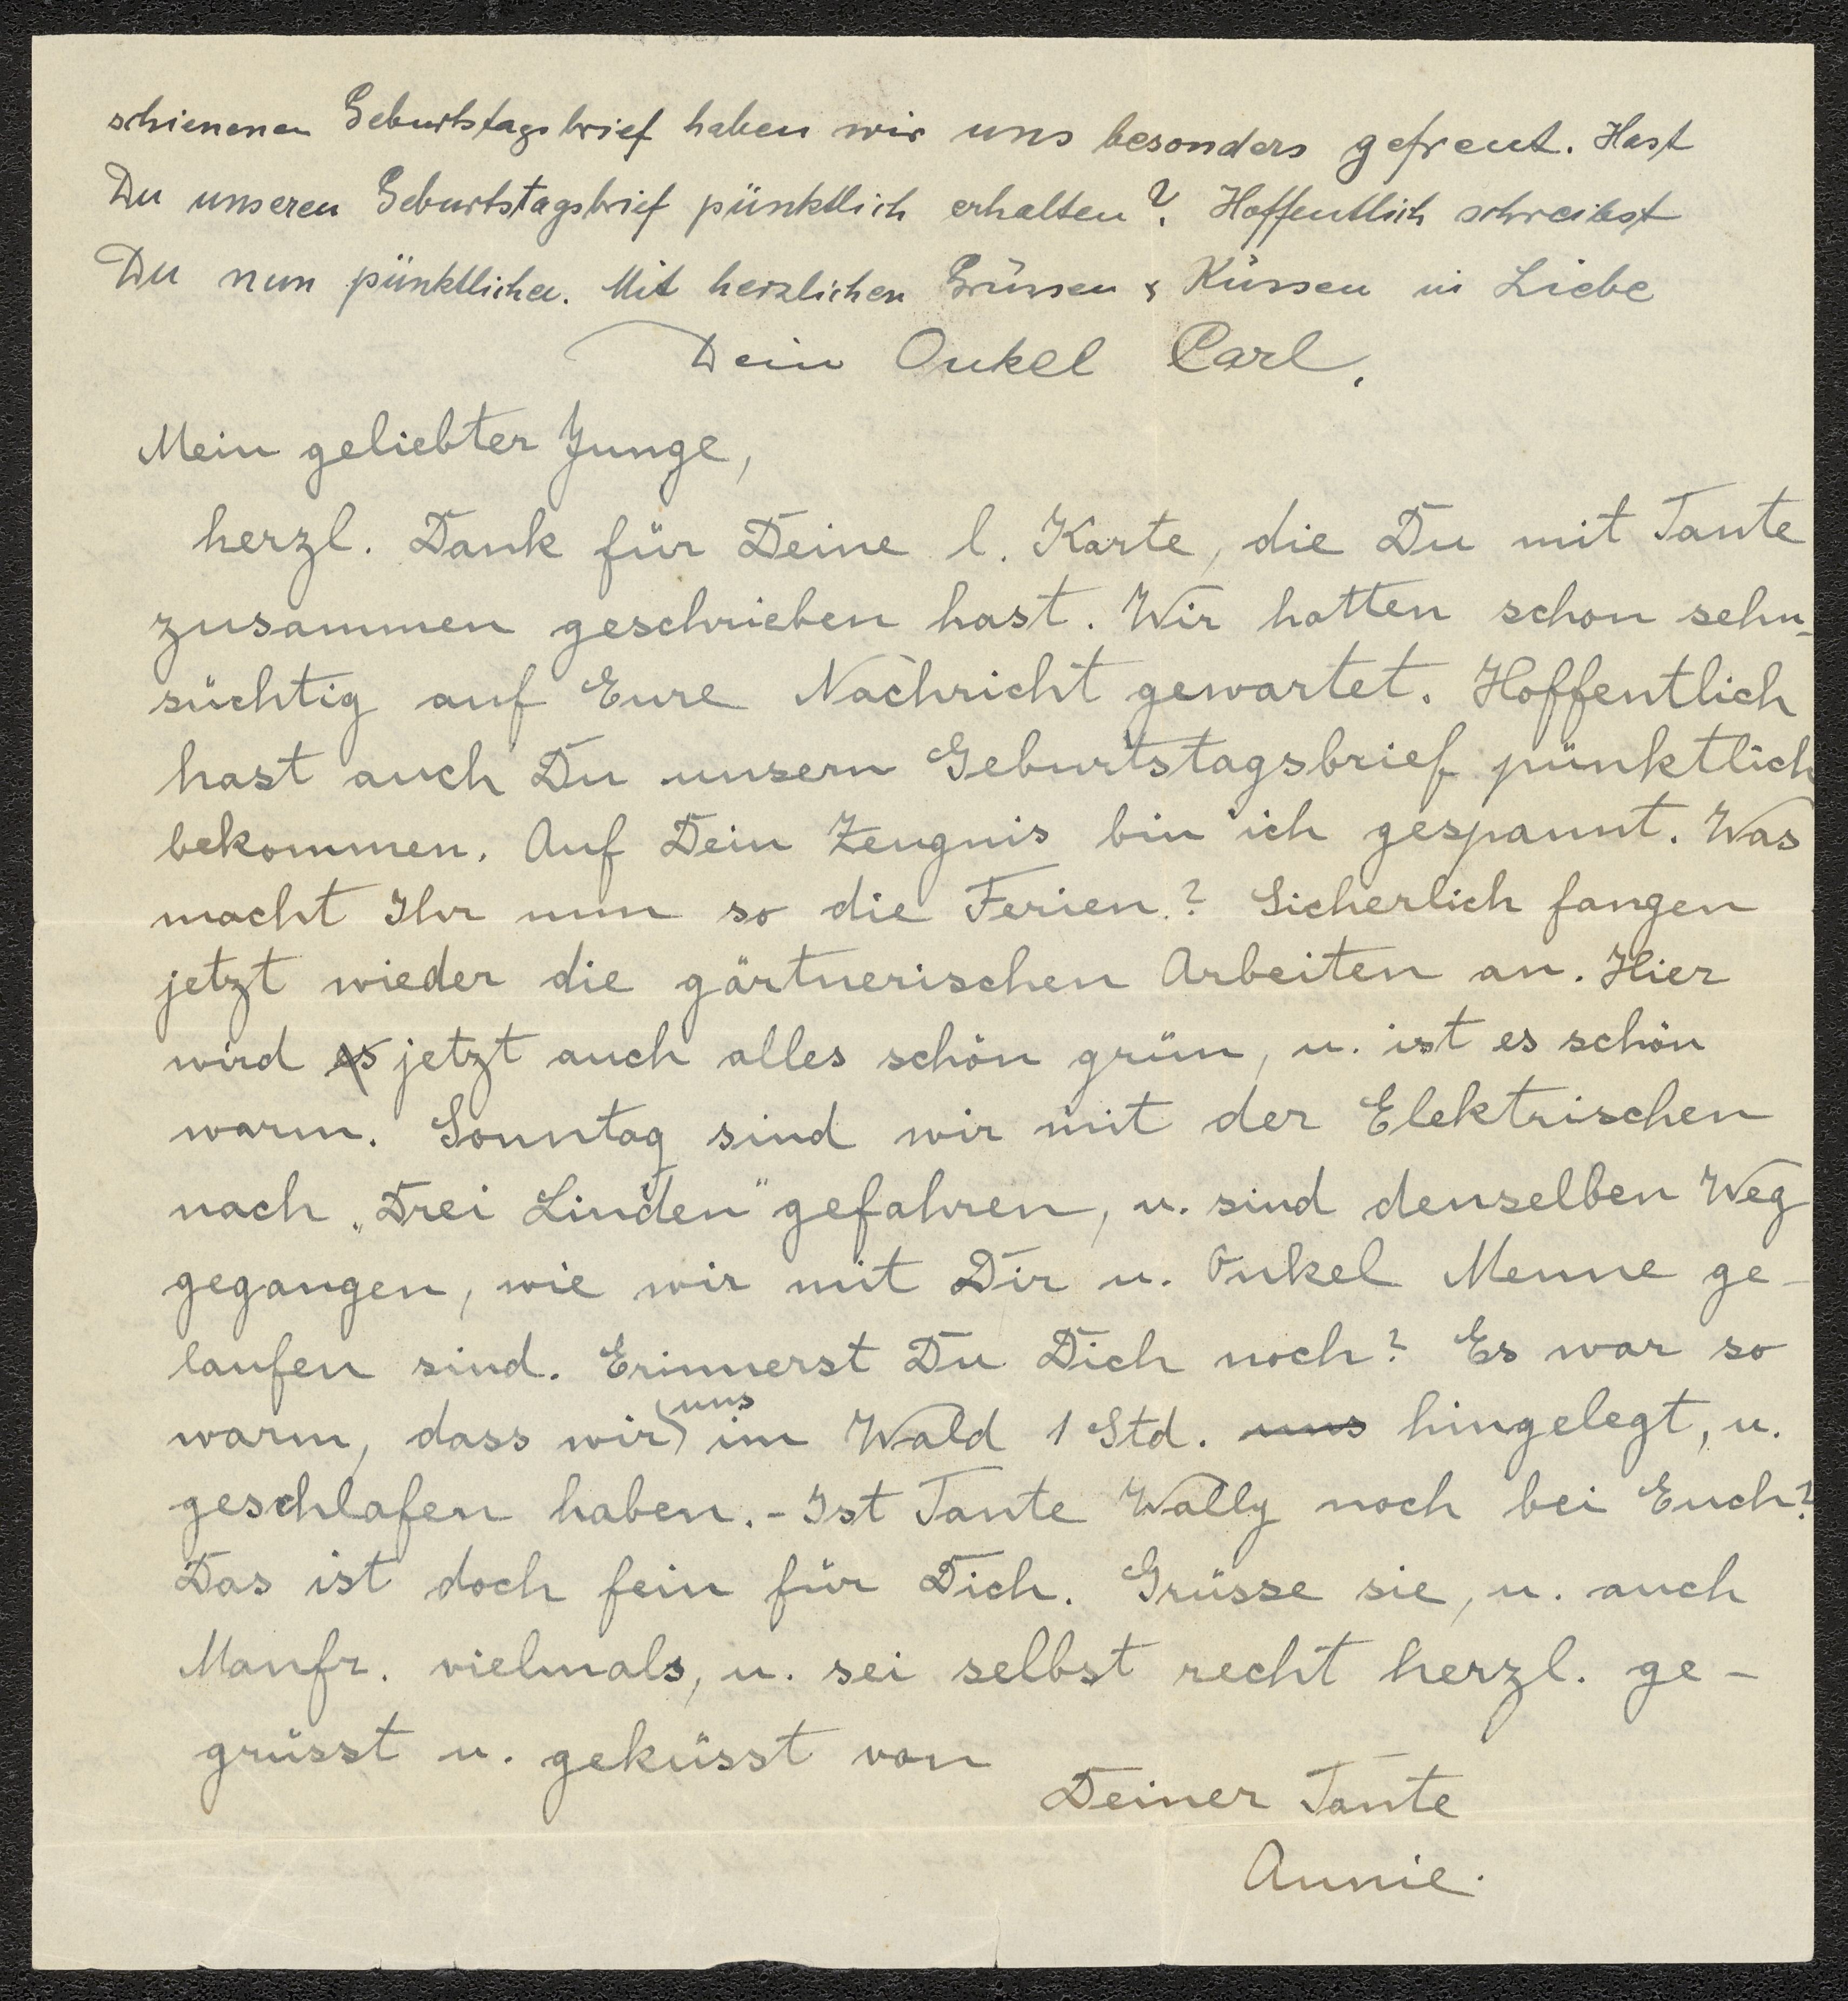 schienenen Geburtstagsbrief haben wir uns besonders gefreut. Hast
Du unseren Geburtstagsbrief pünktlich erhalten? Hoffentlich schreibst
Du nun pünktlicher. Mit herzlichen Grüssen & Küssen in Liebe
Dein Onkel Carl.
Mein geliebter Junge,
herzl. Dank für Deine l. Karte, die Du mit Tante
zusammen geschrieben hast. Wir hatten schon sehn-
süchtig auf Eure Nachricht gewartet. Hoffentlich
hast auch Du unsern Geburtstagsbrief pünktlich
bekommen. Auf Dein Zeugnis bin ich gespannt. Was
macht Ihr nun so die Ferien? Sicherlich fangen
jetzt wieder die gärtnerischen Arbeiten an. Hier
wird es jetzt auch alles schön grün, u. ist es schön
warm. Sonntag sind wir mit der Elektrischen
nach „Drei Linden" gefahren, u. sind denselben Weg
gegangen, wie wir mit Dir u. Onkel Menne ge-
laufen sind. Erinnerst Du Dich noch? Es war so
warm, dass wir uns im Wald 1 Std. uns hingelegt, u.
geschlafen haben. - Ist Tante Wally noch bei Euch?
Das ist doch fein für Dich. Grüsse sie, u. auch
Manfr. vielmals, u. sei selbst recht herzl. ge-
grüsst u. geküsst von
Deiner Tante
Annie.